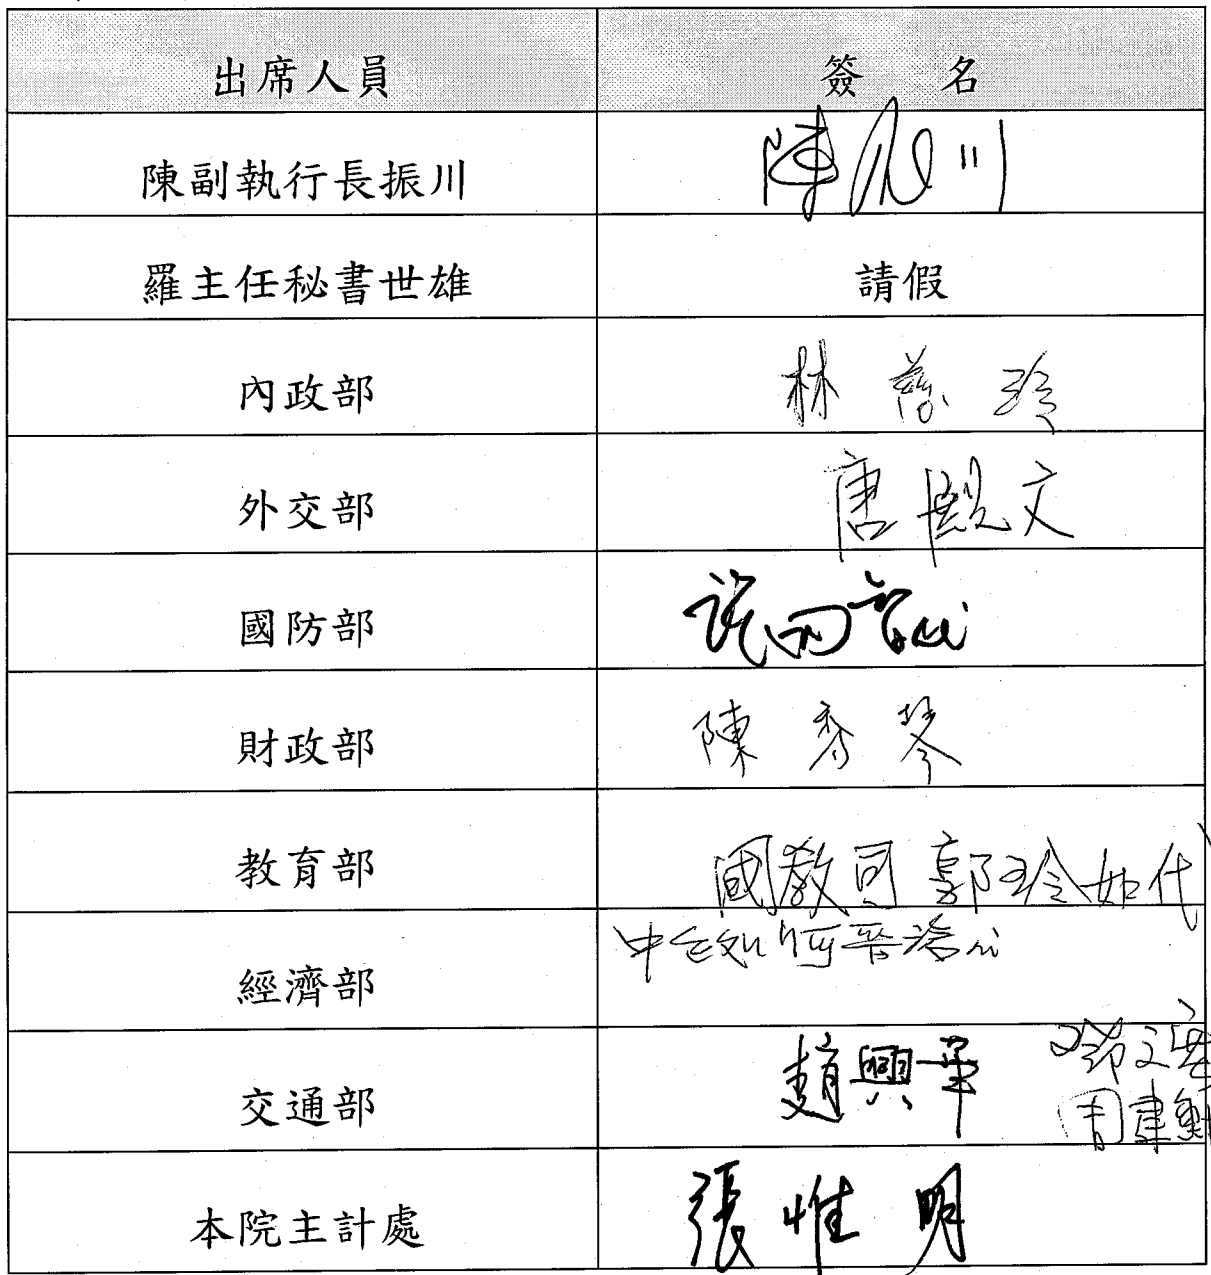 出席人員 簽名
陳副執行長振川 陳振川
羅主任秘書世雄 請假
內政部 林慈玲
外交部 唐殿文
國防部
財政部 陳秀琴
教育部 國教司 郭玲如代
經濟部
交通部 趙興華
本院主計處 張惟明